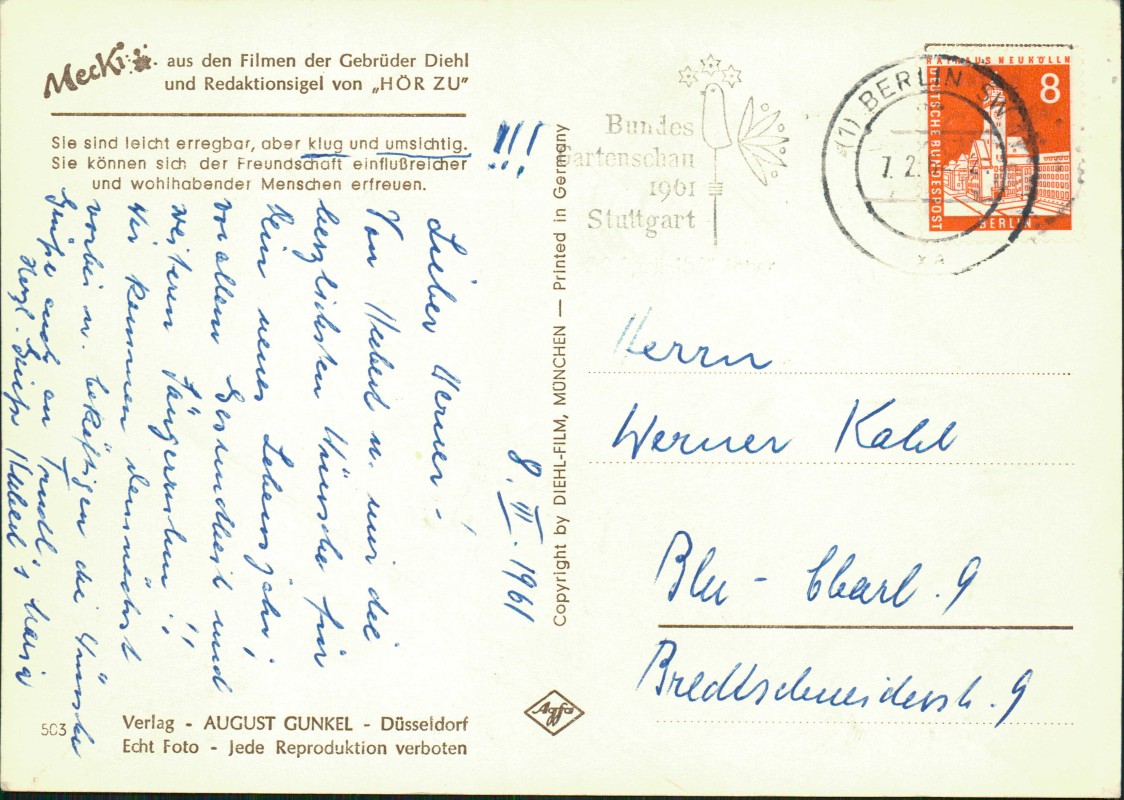 Mecki
aus den Filmen der Gebrüder Diehl
und Redaktionsigel von „HÖR ZU"
Sie sind leicht erregbar, aber klug und umsichtig.
Sie können sich der Freundschaft einflußreicher
und wohlhabender Menschen erfreuen.
!!!
8. III. 1961
Lieber Werner!
Von Hubert u. mir die
herzlichsten Wünsche für
Dein neues Lebensjahr,
vor allem Gesundheit und
weiteren
Wir kommen demnächst
vorbei u. bekräftigen die Wünsche
Grüße auch an Trudl,
Herzl. Grüße Hubert u. Maria
503
Verlag - AUGUST GUNKEL - Düsseldorf
Echt Foto - Jede Reproduktion verboten
Copyright by DIEHL-FILM, MÜNCHEN — Printed in Germany
Agfa
Bundes
gartenschau
1961
Stuttgart
(1) BERLIN SW
7.2.
xa
RATHAUS NEUKÖLLN
8
DEUTSCHE BUNDESPOST
BERLIN
Herrn
Werner Kahl
Bln - Charl. 9
Bredtschneiderstr. 9